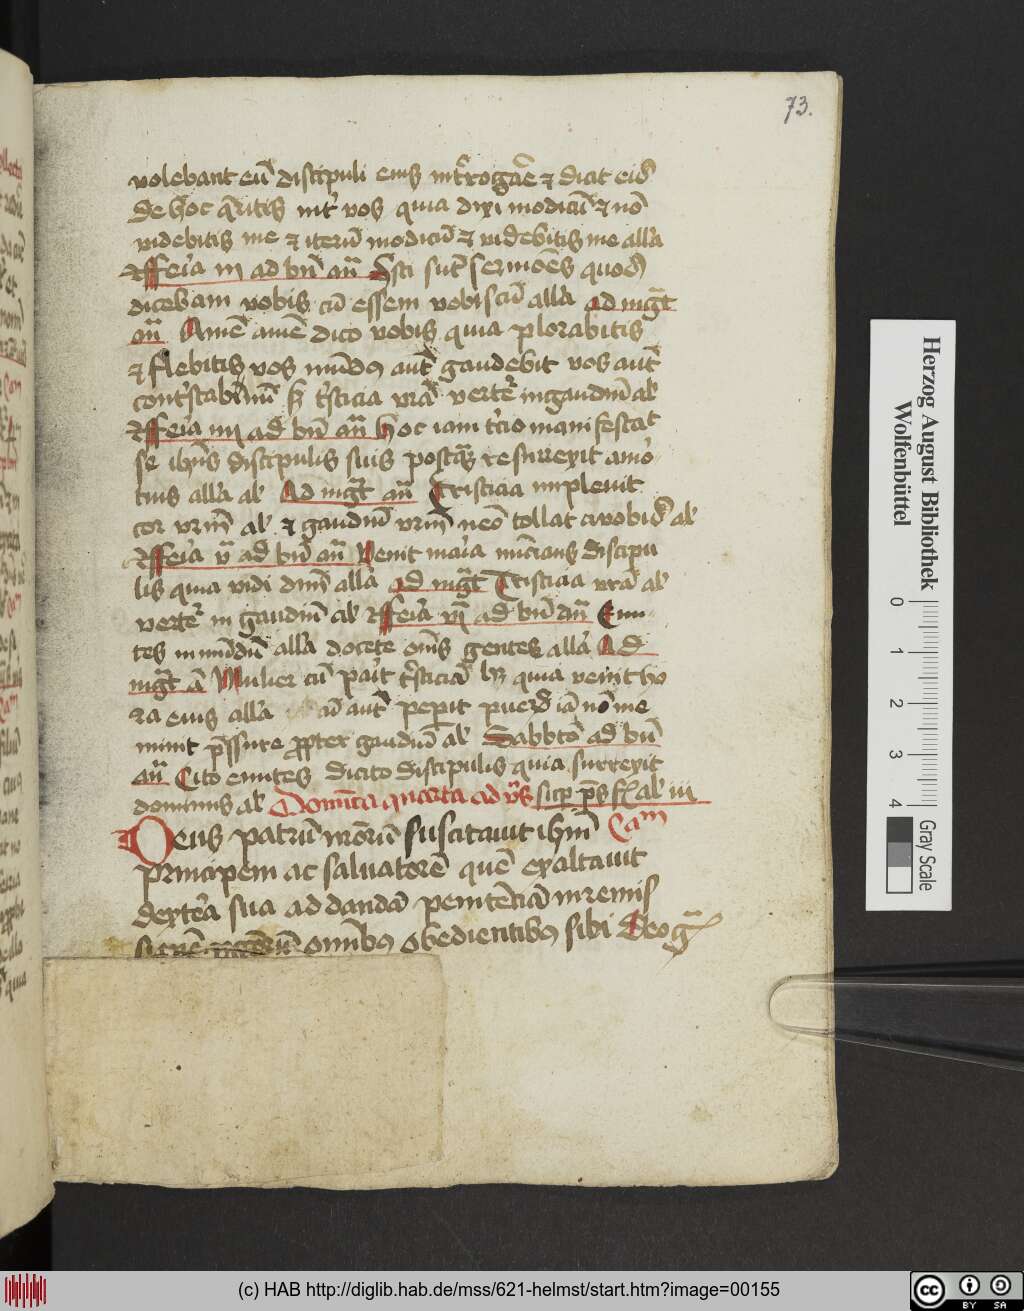 73.
volebant eū discipuli eius int̄rogare ⁊ dicit eis
de hoc q̄ritis int̄ vos quia dixi modicū ⁊ nō
videbitis me ⁊ iterū modicū ⁊ videbitis me alla
feria iij ad bn̄ an̄ Isti sūt sermōes quos
dicebam vobis cū essem vobiscū alla ad mḡt
an̄ Amē amē dico vobis quia plorabitis
⁊ flebitis vos mūdus aut̄ gaudebit vos aut̄
cont̄stabimī s; t̄sticia vrā vertet̄ in gaudiū al
feria iiij ad bn̄ an̄ hoc iam t̄cio manifestat
se ihūs discipulis suis postq̄ resurrexit a mō
tuis alla al Ad mḡt an̄ Tristicia impleuit
cor vrm̄ al ⁊ gaudiū vrm̄ nēo tollat a vobis al
feria v ad bn̄ an̄ Venit maria nūcians discipu
lis quia vidi dnm̄ alla ad mḡt Tristicia vrā al
vertet̄ in gaudiū al feria vj ad bn̄ an̄ Eun
tes in mūdū alla docete om̄s gentes alla Ad
mḡt ā Mulier cū parit t̄sticiā h; quia venit ho
ra eius alla cū aut̄ pep̄it puerū iā nō me
minit p̄ssure propter gaudiū al Sabbto ad bn̄
an̄ Cito euntes dicite discipulis quia surrexit
dominus al Domīca quarta ad v̄s sic al iij
Deus patrū nrōrū suscitauit ihm̄ Cam
principem ac saluatorē quē exaltauit
dextera sua ad dandā penitēciā in remis
omībus obedientibus sibi Deo gr̄
Herzog August Bibliothek
Wolfenbüttel
0
1
2
3
4
Gray Scale
(c) HAB http://diglib.hab.de/mss/621-helmst/start.htm?image=00155
cc BY SA